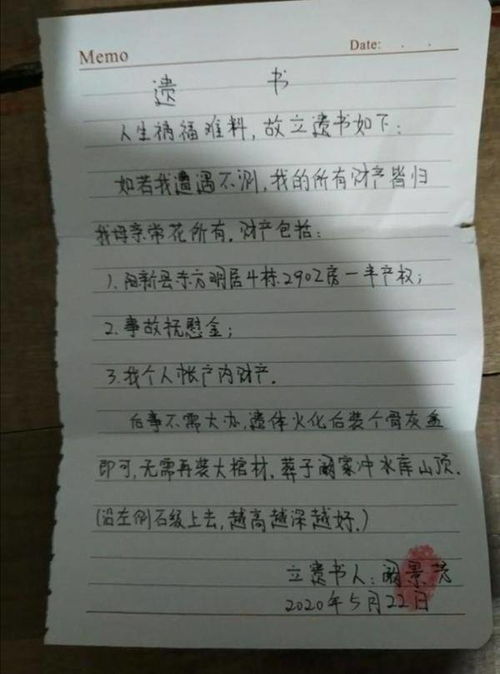 Memo Date: . .
遗 书
人生祸福难料，故立遗书如下：
如若我遭遇不测，我的所有财产皆归
我母亲常花所有。财产包括：
1、阳新县东方明居4栋2902房一半产权；
2、事故抚慰金；
3、我个人帐户内财产。
后事不需大办，遗体火化后装个骨灰盒
即可，无需再装大棺材。葬于阚家冲水库山顶。
（沿左侧石级上去，越高越深越好。）
立遗书人：阚景芳
2020年5月22日